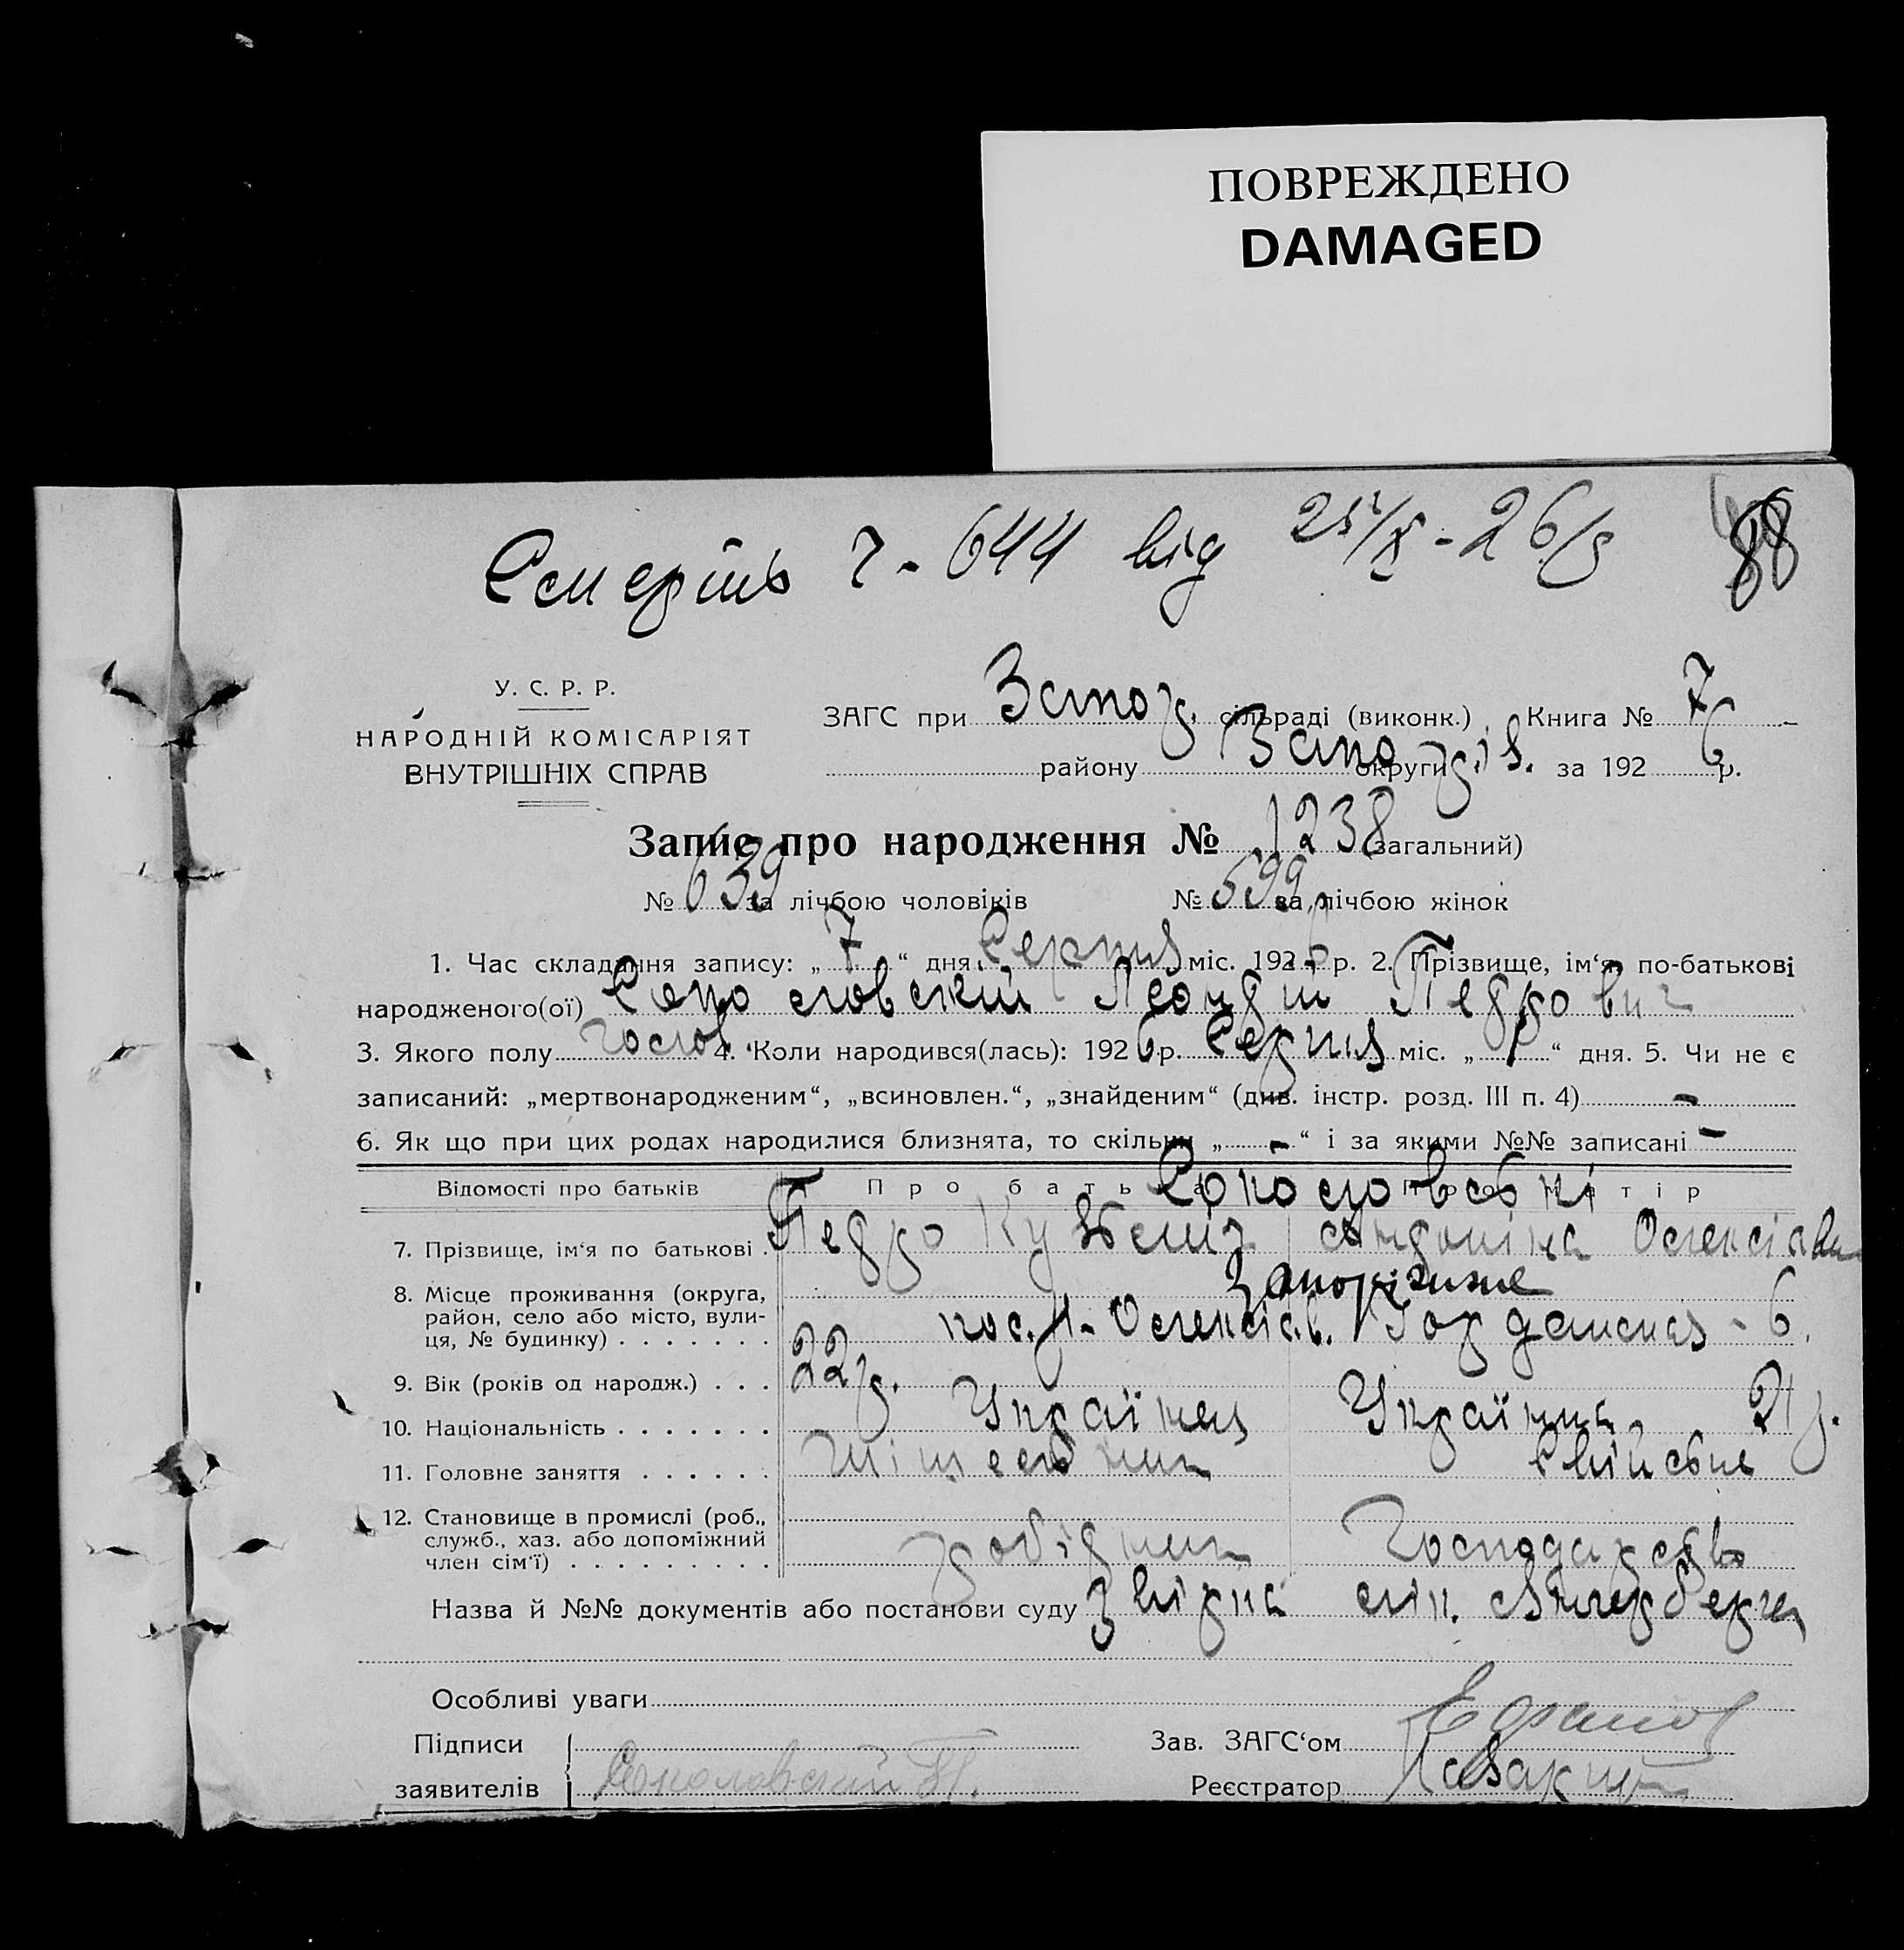 ПОВРЕЖДЕНО
DAMAGED
Смерть ч. 644 від 25/X - 26/р
88
У. С. Р. Р.
НАРОДНІЙ КОМІСАРІЯТ
ВНУТРІШНІХ СПРАВ
ЗАГС при Запор. сільраді (виконк.) Книга № 7
району Запоріз. округи за 1926 р.
Запис про народження № 1238 (загальний)
№ 639 за лічбою чоловіків № 599 за лічбою жінок
1. Час складання запису: „7“ дня Серпня міс. 1926 р. 2. Прізвище, ім‘я, по-батькові
народженого(ої) Соколовський Леонід Педрович
3. Якого полу чолов. 4. Коли народився(лась): 1926 р. Серпня міс. „1“ дня. 5. Чи не є
записаний: „мертвонародженим“, „всиновлен.“, „знайденим“ (див. інстр. розд. III п. 4) -
6. Як що при цих родах народилися близнята, то скільки „-“ і за якими №№ записані -
Відомості про батьків Про батька Про матір
Соколовські
7. Прізвище, ім‘я по батькові . Педро Кузьміч Андоніна Олексіївн
8. Місце проживання (округа,
район, село або місто, вули-
ця, № будинку) . . . . . . .
Запоріжжя
пос. Олексіїв.  - 6.
9. Вік (років од народж.) . . . 22 р. 21 р.
10. Національність . . . . . . . Українец Українка
11. Головне заняття . . . . . . Свійське
12. Становище в промислі (роб.,
служб., хаз. або допоміжний
член сім‘ї) . . . . . . . . .
робідник Господарство
Назва й №№ документів або постанови суду звірка
Особливі уваги
Підписи
заявителів Соколовский П.
Зав. ЗАГС‘ом
Реєстратор